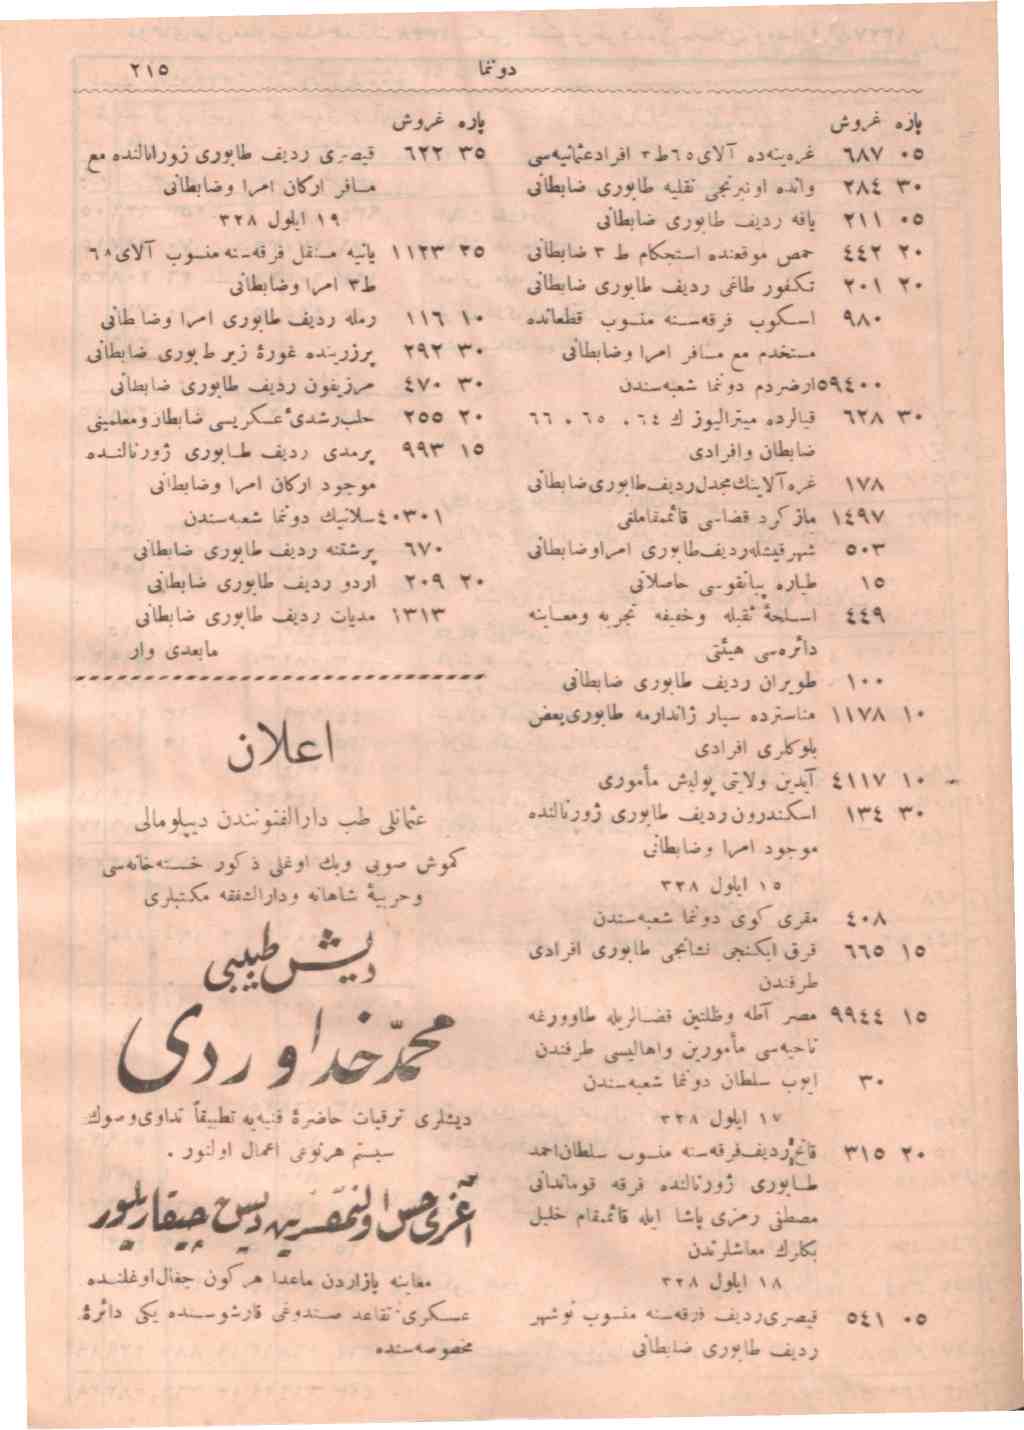 دوننما
٢١٥
پاره غروش
٠٥ ٦٨٧ غره‌ینه‌ده آلای ٦٥ ط ٣ افراد عثمانیه‌سی
٣٠ ٢٨٤ وانده اوننجی نقلیه طابوری ضابطانی
٠٥ ٢١١ یافه ردیف طابوری ضابطانی
٢٠ ٤٤٢ حمص موقعنده استحكام ط ٣ ضابطانی
٢٠ ٢٠١ تكفور طاغی ردیف طابوری ضابطانی
٩٨٠ اسكوب فرقه‌سنه منسوب قطعاتده
مستخدم مع مسافر امرا وضابطانی
٥٩٤٠٠ ارضردم دوننما شعبه‌سندن
٣٠ ٦٢٨ قیالرده میترالیوز ك ٦٤ ، ٦٥ ، ٦٦
ضابطان وافرادی
١٧٨ غره آلاینك مجدل ردیف طابوری ضابطانی
١٤٩٧ ملازكرد قضاسی قائممقاملغی
٥٠٣ شهرقیشله ردیف طابوری امرا وضابطانی
١٥ طیاره پیانقوسی حاصلاتی
٤٤٩ اسلحهٔ ثقیله وخفیفه تجربه ومعاینه
دائره‌سی هیئتی
١٠٠ طویران ردیف طابوری ضابطانی
١٠ ١١٧٨ مناسترده سیار ژاندارمه طابوری بعض
بلوكلری افرادی
١٠ ٤١١٧ آیدین ولایتی پولیس مأموری
٣٠ ١٣٤ اسكندرون ردیف طابوری ژورنالنده
موجود امرا وضابطانی
١٥ ایلول ٣٢٨
٤٠٨ مقری كوی دوننما شعبه‌سندن
١٥ ٦٦٥ قرق ایكنجی نشانجی طابوری افرادی
طرفندن
١٥ ٩٩٤٤ مصر آطه وظلتین قضالریله طاوورغه
ناحیه‌سی مأمورین واهالیسی طرفندن
٣٠ ایوب سلطان دوننما شعبه‌سندن
١٧ ایلول ٣٢٨
٢٠ ٣١٥ فاتح ردیف فرقه‌سنه منسوب سلطان احمد
طابوری ژورنالنده فرقه قوماندانی
مصطفی رمزی پاشا ایله قائممقام خلیل
بكلرك معاشلرندن
١٨ ایلول ٣٢٨
٠٥ ٥٤١ قیصری ردیف فرقه‌سنه منسوب نوشهر
ردیف طابوری ضابطانی
پاره غروش
٣٥ ٦٢٢ قیصری ردیف طابوری ژورنالنده مع
مسافر اركان امرا وضابطانی
١٩ ایلول ٣٢٨
٢٥ ١١٢٣ یانیه مستقل فرقه‌سنه منسوب آلای ٦٨
ط ٣ امرا وضابطانی
١٠ ١١٦ رمله ردیف طابوری امرا وضابطانی
٣٠ ٢٩٢ پرزرینده غورهٔ زیر طابوری ضابطانی
٣٠ ٤٧٠ مرزیفون ردیف طابوری ضابطانی
٢٠ ٢٥٥ حلب رشدیٔ عسكریسی ضابطان ومعلمینی
١٥ ٩٩٣ پرمدی ردیف طابوری ژورنالنده
موجود اركان امرا وضابطانی
٤٠٣٠١ سلانیك دوننما شعبه‌سندن
٦٧٠ پرشتنه ردیف طابوری ضابطانی
٢٠ ٢٠٩ اردو ردیف طابوری ضابطانی
١٣١٣ مدیات ردیف طابوری ضابطانی
مابعدی وار
اعلان
عثمانلی طب دارالفنونندن دیپلومالی
كموش صویی وبك اوغلی ذكور خسته‌خانه‌سی
وحربیهٔ شاهانه ودارالشفقه مكتبلری
دیش طبیبی
محمد خداوردی
دیشلری ترقیات حاضرهٔ فنیه‌یه تطبیقاً تداوی وصوك
سیستم هرنوعی اعمال اولنور .
آغری حس اولنمقسزین دیش چیقاریلیور
معاینه پازاردن ماعدا هركون جغال اوغلنده
عسكری تقاعد صندوغی قارشوسنده یكی دائرهٔ
مخصوصه‌سنده